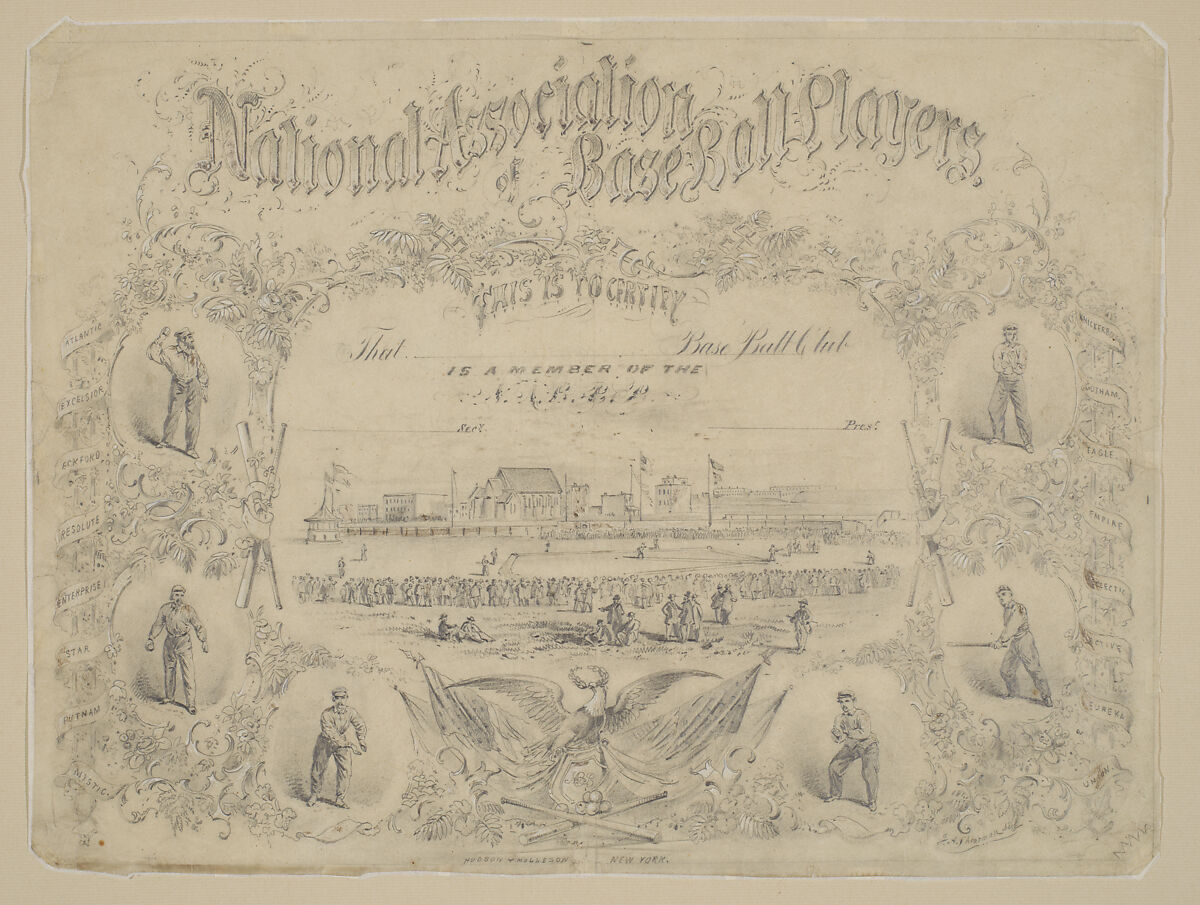 National Association
of Base Ball Players.
THIS IS TO CERTIFY
That Base Ball Club
IS A MEMBER OF THE
N. A. B. B. P.
Secy. Prest.
ATLANTIC
EXCELSIOR
ECKFORD
RESOLUTE
ENTERPRISE
STAR
PUTNAM
MISTIC.
KNICKERBO
GOTHAM
EAGLE
EMPIRE
ECLECTIC
ACTIVE
EUREKA
UNION
HUDSON & MILLESON NEW YORK.